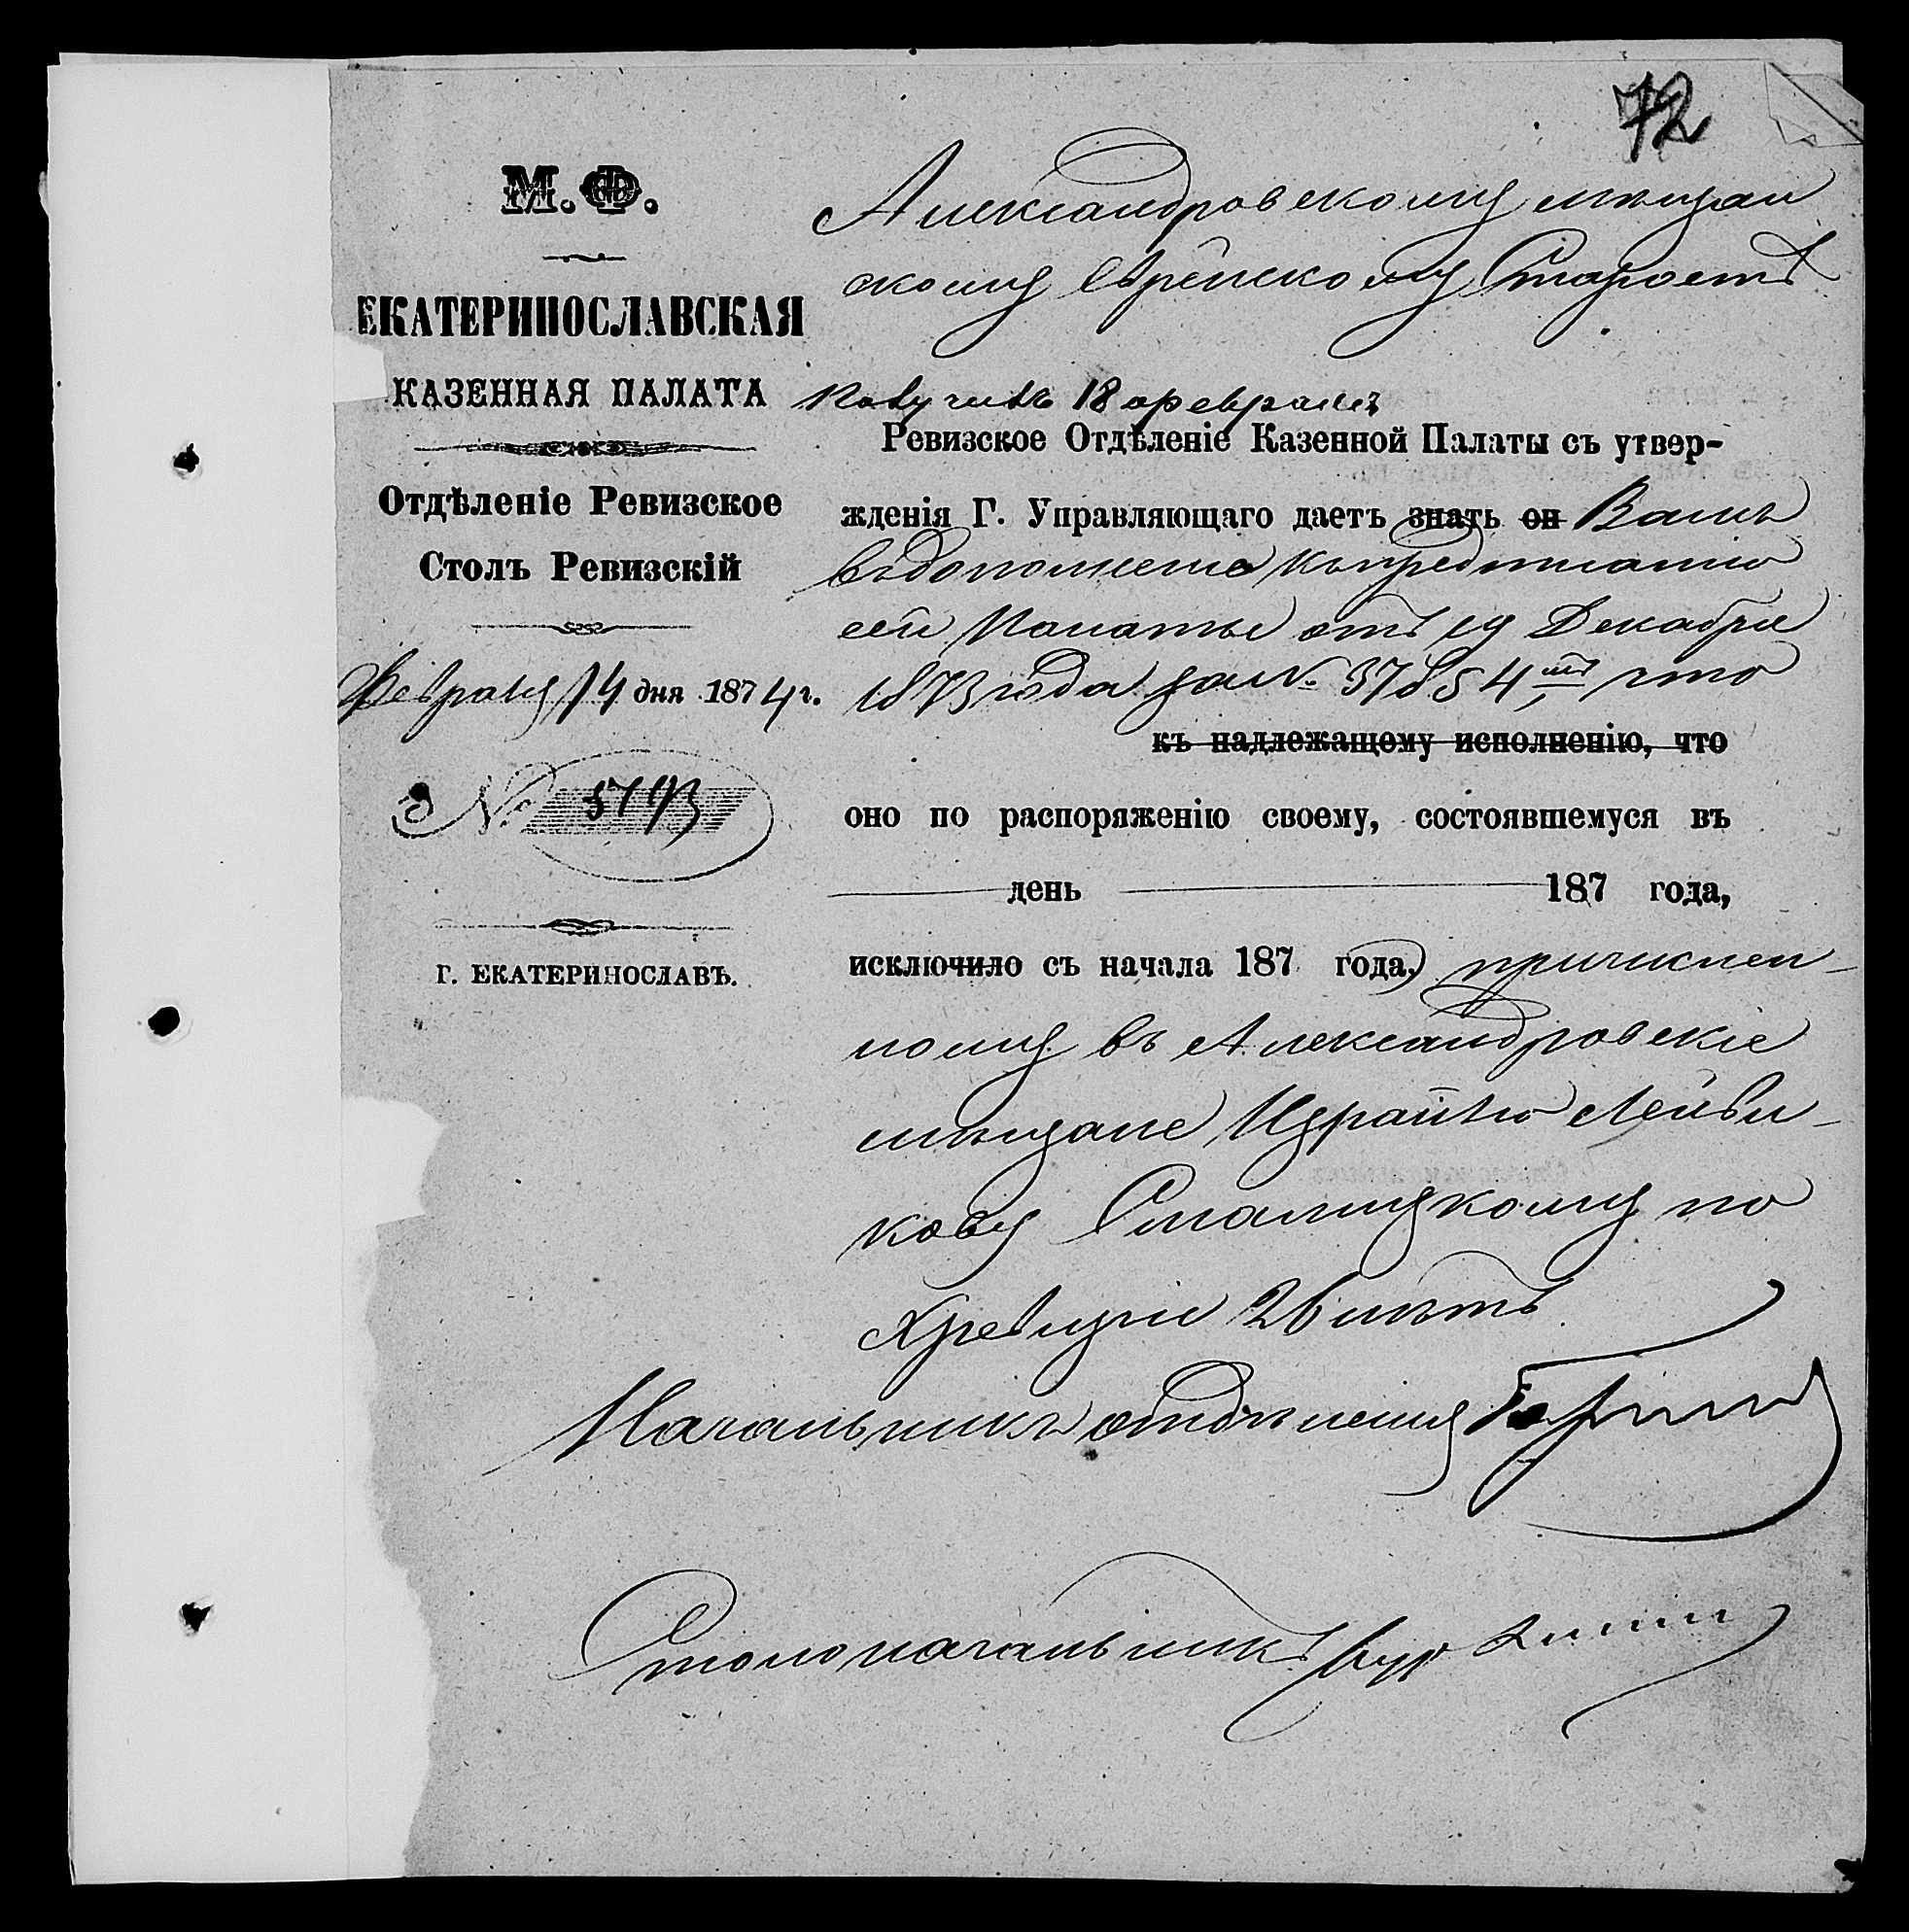 72
М. Ф.
ЕКАТЕРИНОСЛАВСКАЯ
КАЗЕННАЯ ПАЛАТА
Отдѣленіе Ревизское
Столъ Ревизскій
Февраля 14 дня 1874 г.
№ 5793
Г. ЕКАТЕРИНОСЛАВЪ.
Александровскому мѣщан
скому Еврейскому Старостѣ
Получилъ 18 февраля
Ревизское Отдѣленіе Казенной Палаты съ утвер-
жденія Г. Управляющаго даетъ знать он Вамъ
въ дополненіе къ предписанію
сей Палаты отъ 19 Декабря
1873 года за № 37854, что
къ надлежащему исполненію, что
оно по распоряженію своему, состоявшемуся въ
день 187 года,
исключило съ начала 187 года, причислен-
ному въ Александровскіе
мѣщане Израилю Лейви-
кову Смалицкому по
X ревизіи 26 лѣтъ.
Начальникъ отдѣленія
Столоначальникъ